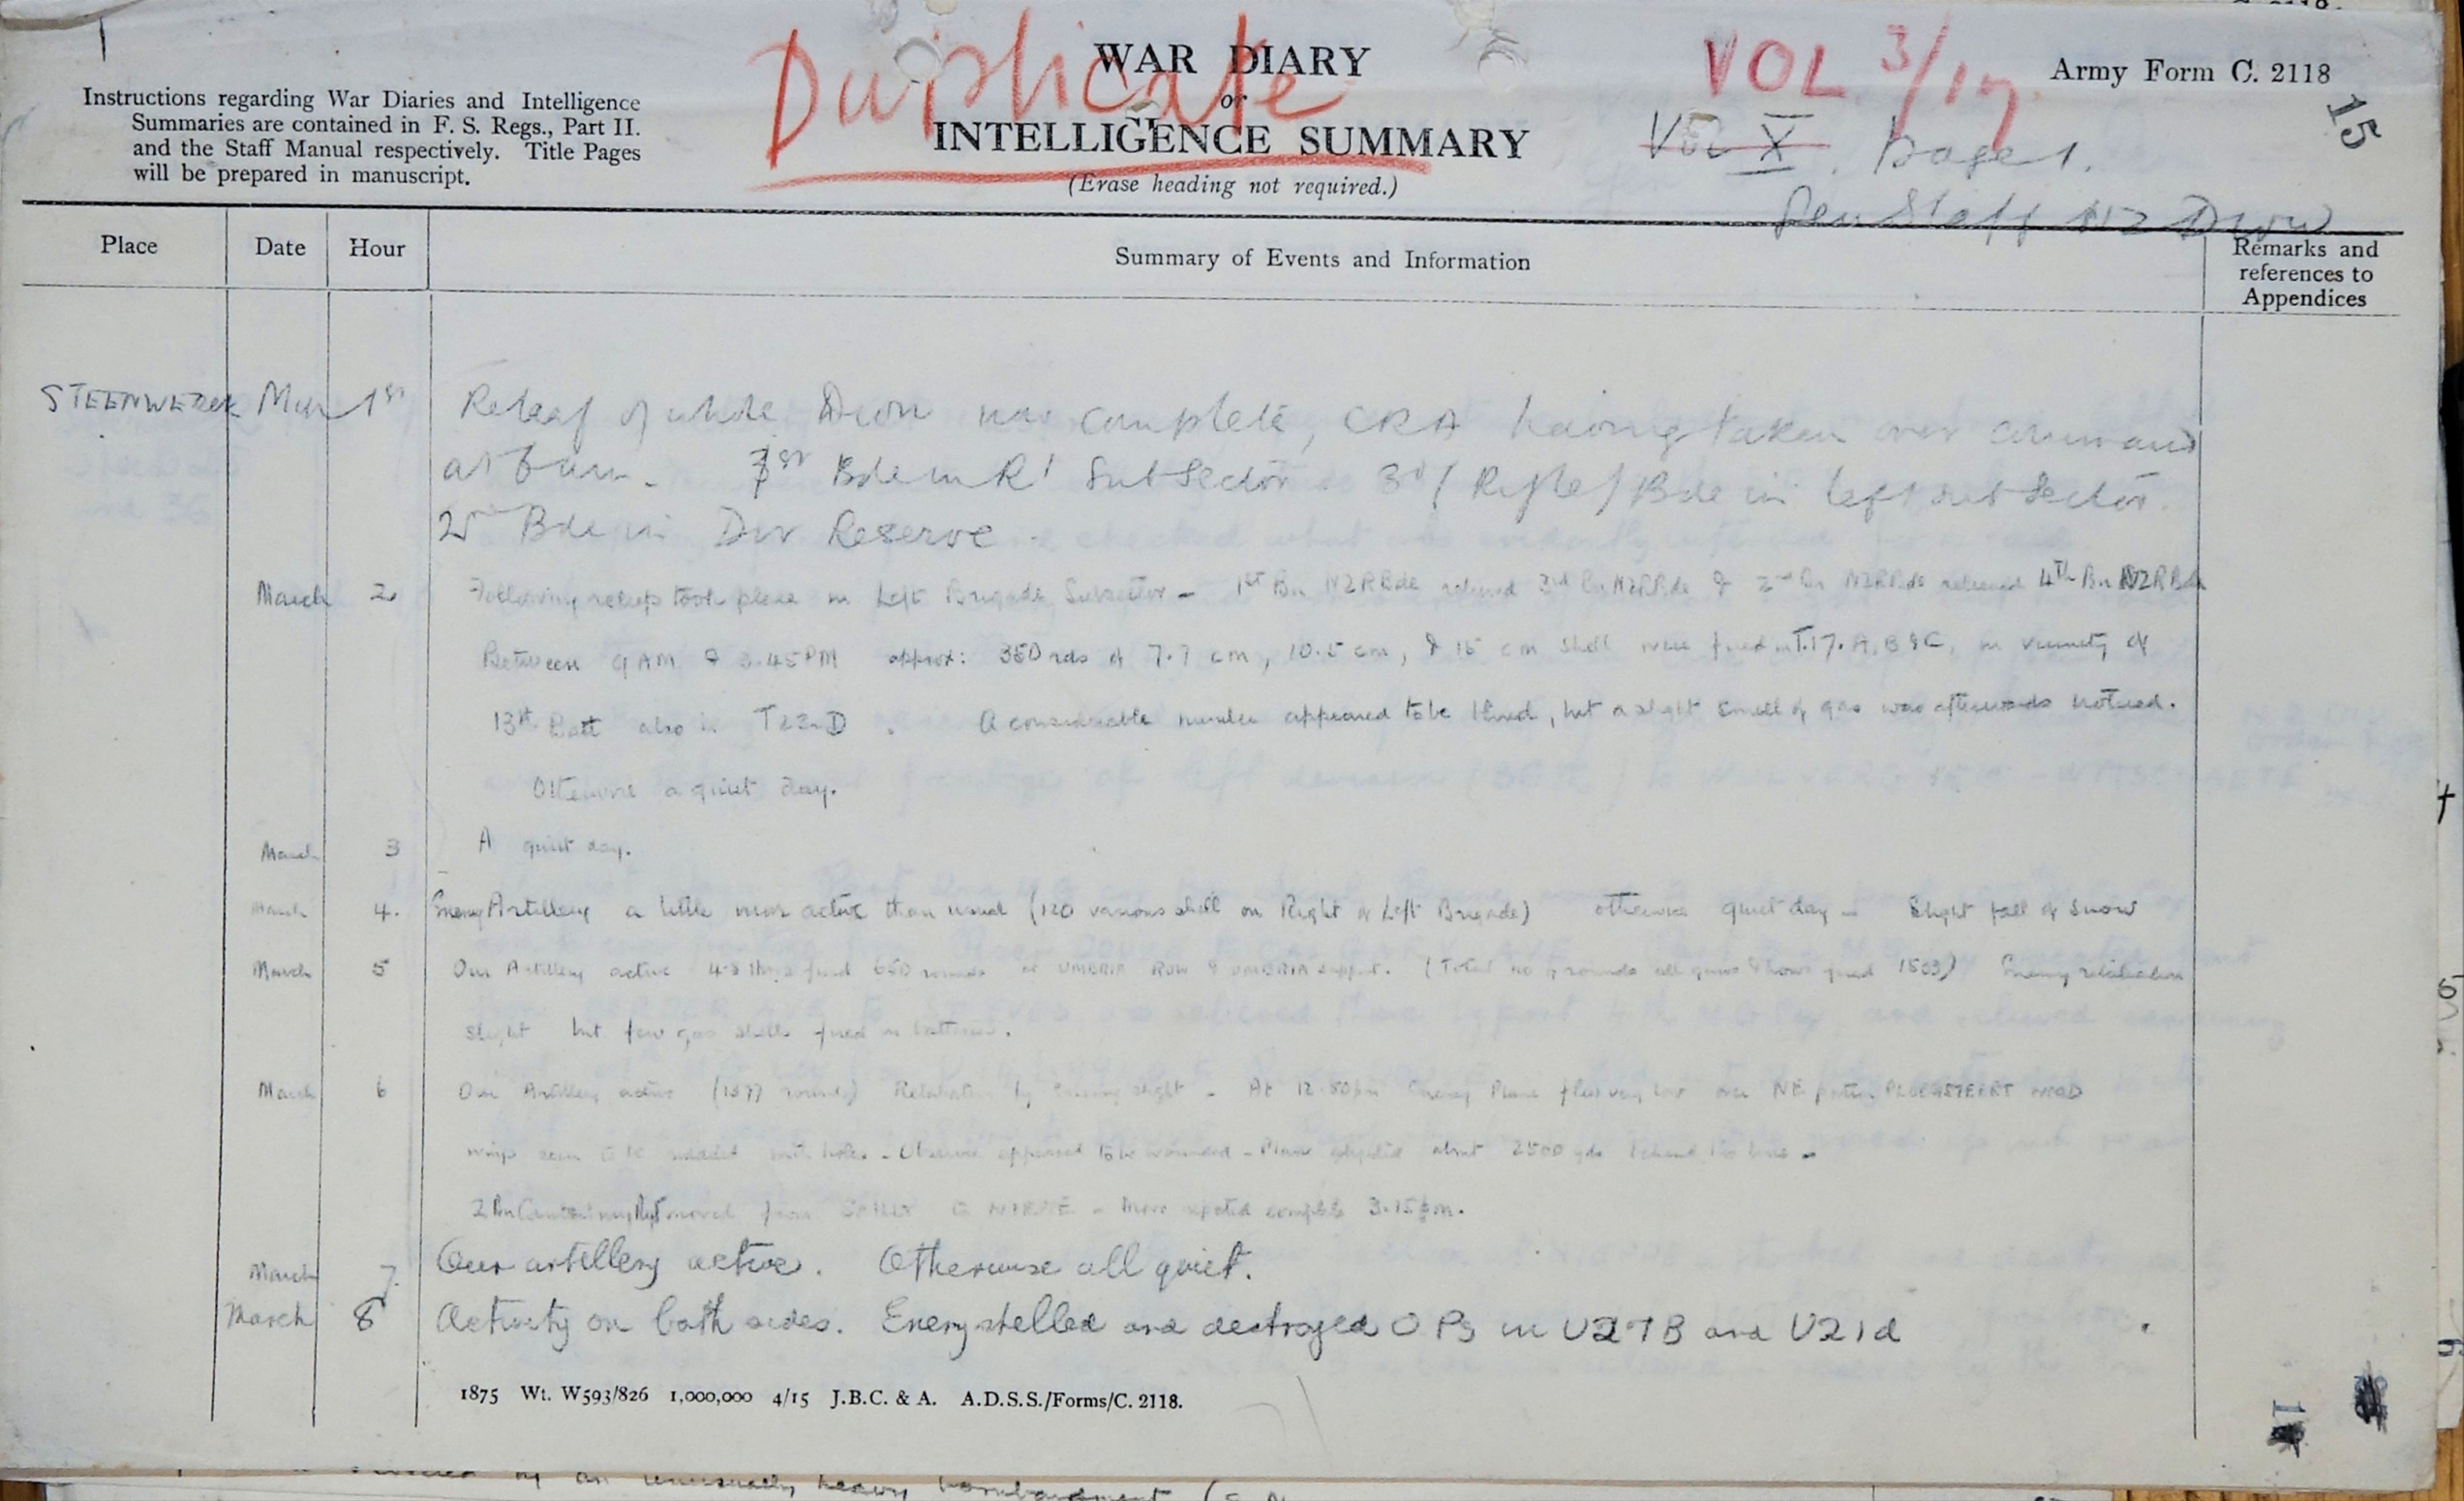 Duplicate
WAR DIARY
or
INTELLIGENCE SUMMARY
(Erase heading not required.)
Instructions regarding War Diaries and Intelligence
Summaries are contained in F. S. Regs., Part II.
and the Staff Manual respectively. Title Pages
will be prepared in manuscript.
VOL 3/17.
Army Form C. 2118
15
Vol X. page 1.
Gen Staff NZ Divn
Place Date Hour Summary of Events and Information Remarks and
references to
Appendices
STEENWERCK Mch 1st Relief of whole Divn was complete, CRA having taken over command
at 6 am. 1st Bde in Rt Subsector. 3d (Rifle) Bde in left subsector.
2nd Bde in Div Reserve.
March 2. Following reliefs took place in Left Brigade Subsector - 1st Bn NZRBde relieved 3rd Bn NZRBde & 2nd Bn NZRBde relieved 4th Bn NZRBde
Between 9 AM & 3.45 PM approx: 350 rds of 7.7 cm, 10.5 cm, & 15 cm shell were fired in T.17.A, B & C, in vicinity of
13th Batt also in T23.D. A considerable number appeared to be blind, but a slight smell of gas was afterwards noticed.
Otherwise a quiet day.
March 3 A quiet day.
March 4. Enemy Artillery a little more active than usual (120 various shell on Right & Left Brigade) otherwise quiet day - Slight fall of snow
March 5 Our Artillery active fired 650 rounds at UMBRIA ROW & UMBRIA support. (Total no of rounds all guns & hows fired 1503) Enemy retaliation
slight but few gas shells fired on batteries.
March 6 Our Artillery active (1377 rounds) Retaliation by enemy slight - At 12.50 pm Enemy Plane flew very low over NE portion PLOEGSTEERT WOOD
wings seen to be riddled with holes - Observer appeared to be wounded - Plane about 2500 yds behind his lines -
2 Bn Canterbury Regt moved from SAILLY to NIEPPE - Move reported complete 3.15 pm.
March 7. Our artillery active. Otherwise all quiet.
March 8 Activity on both sides. Enemy shelled and destroyed O Ps in U27B and U21d
1875 Wt. W593/826 1,000,000 4/15 J.B.C. & A. A.D.S.S./Forms/C. 2118.